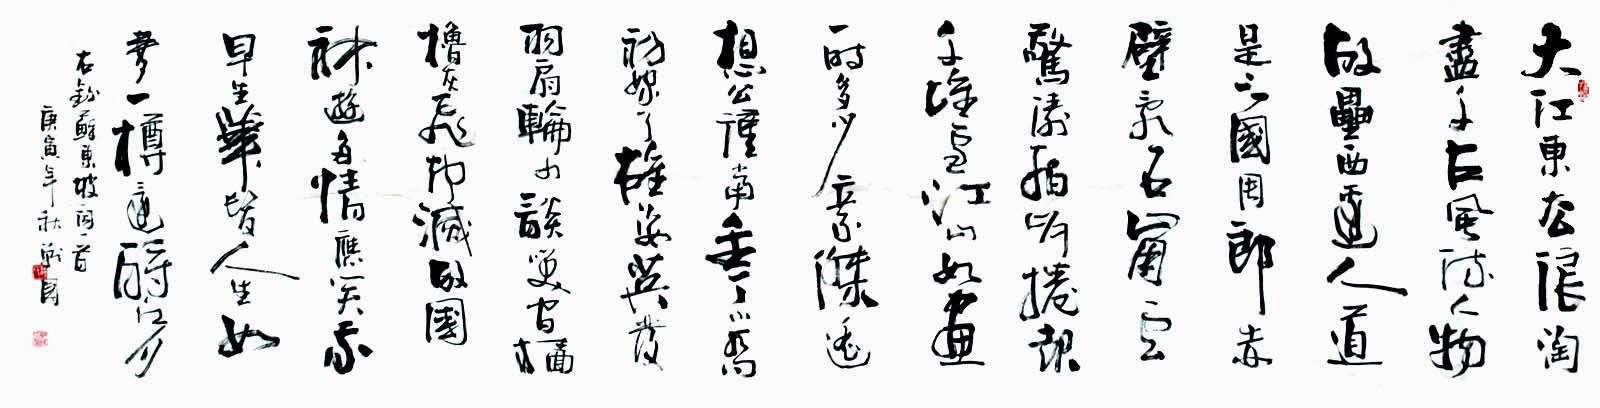 大江東去浪淘
盡千古風流人物
故壘西邊人道
是三國周郎赤
壁亂石崩雲
驚濤拍岸捲起
千堆雪江山如畫
一時多少豪傑遙
想公瑾當年小喬
初嫁了雄姿英發
羽扇輪巾談笑間檣
櫓灰飛煙滅故國
神遊多情應笑我
早生華髮人生如
夢一樽還酹江月
右錄蘇東坡詞一首
庚寅年秋